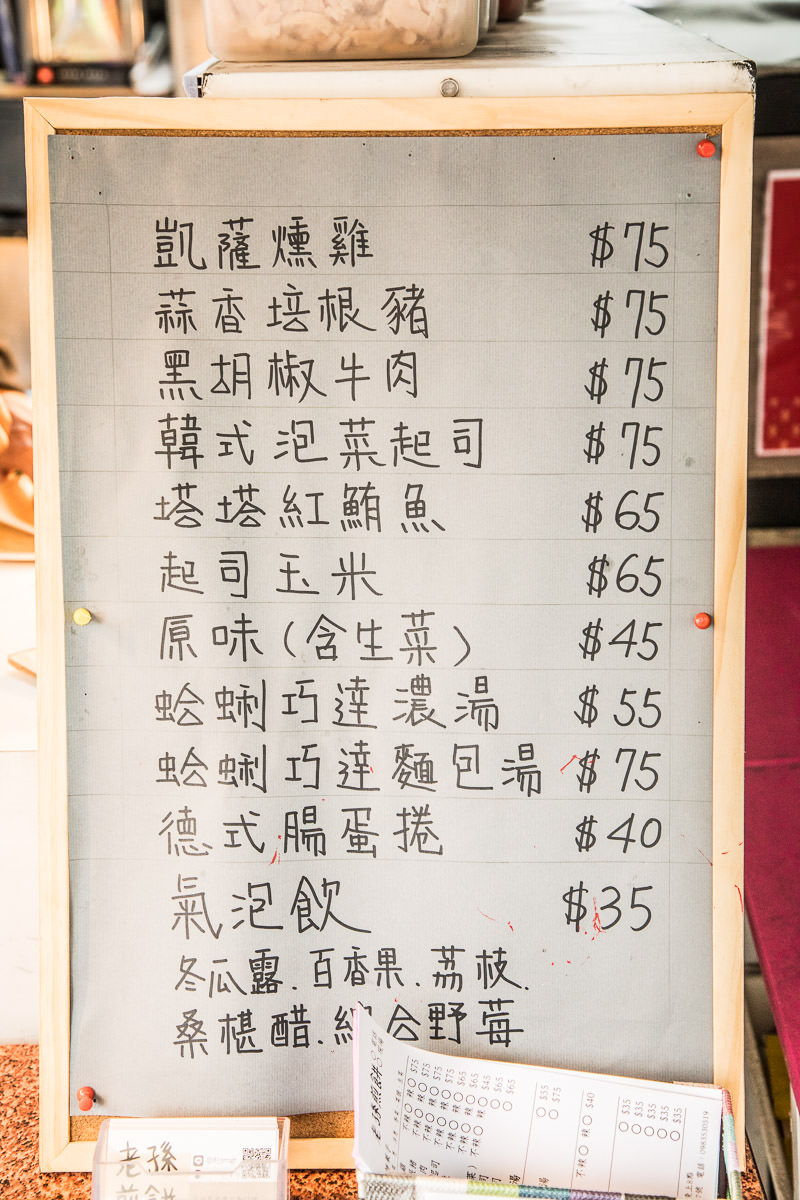 凱薩燻雞 $75
蒜香培根豬 $75
黑胡椒牛肉 $75
韓式泡菜起司 $75
塔塔紅鮪魚 $65
起司玉米 $65
原味(含生菜) $45
蛤蜊巧達濃湯 $55
蛤蜊巧達麵包湯 $75
德式腸蛋捲 $40
氣泡飲 $35
冬瓜露.百香果.荔枝.
桑椹醋.綜合野莓
老孫
煎餅
$75
$75
$75
$75
$65
$65
$45
$65
$65
$55
$75
$40
$35
$35
$35
$35
$35